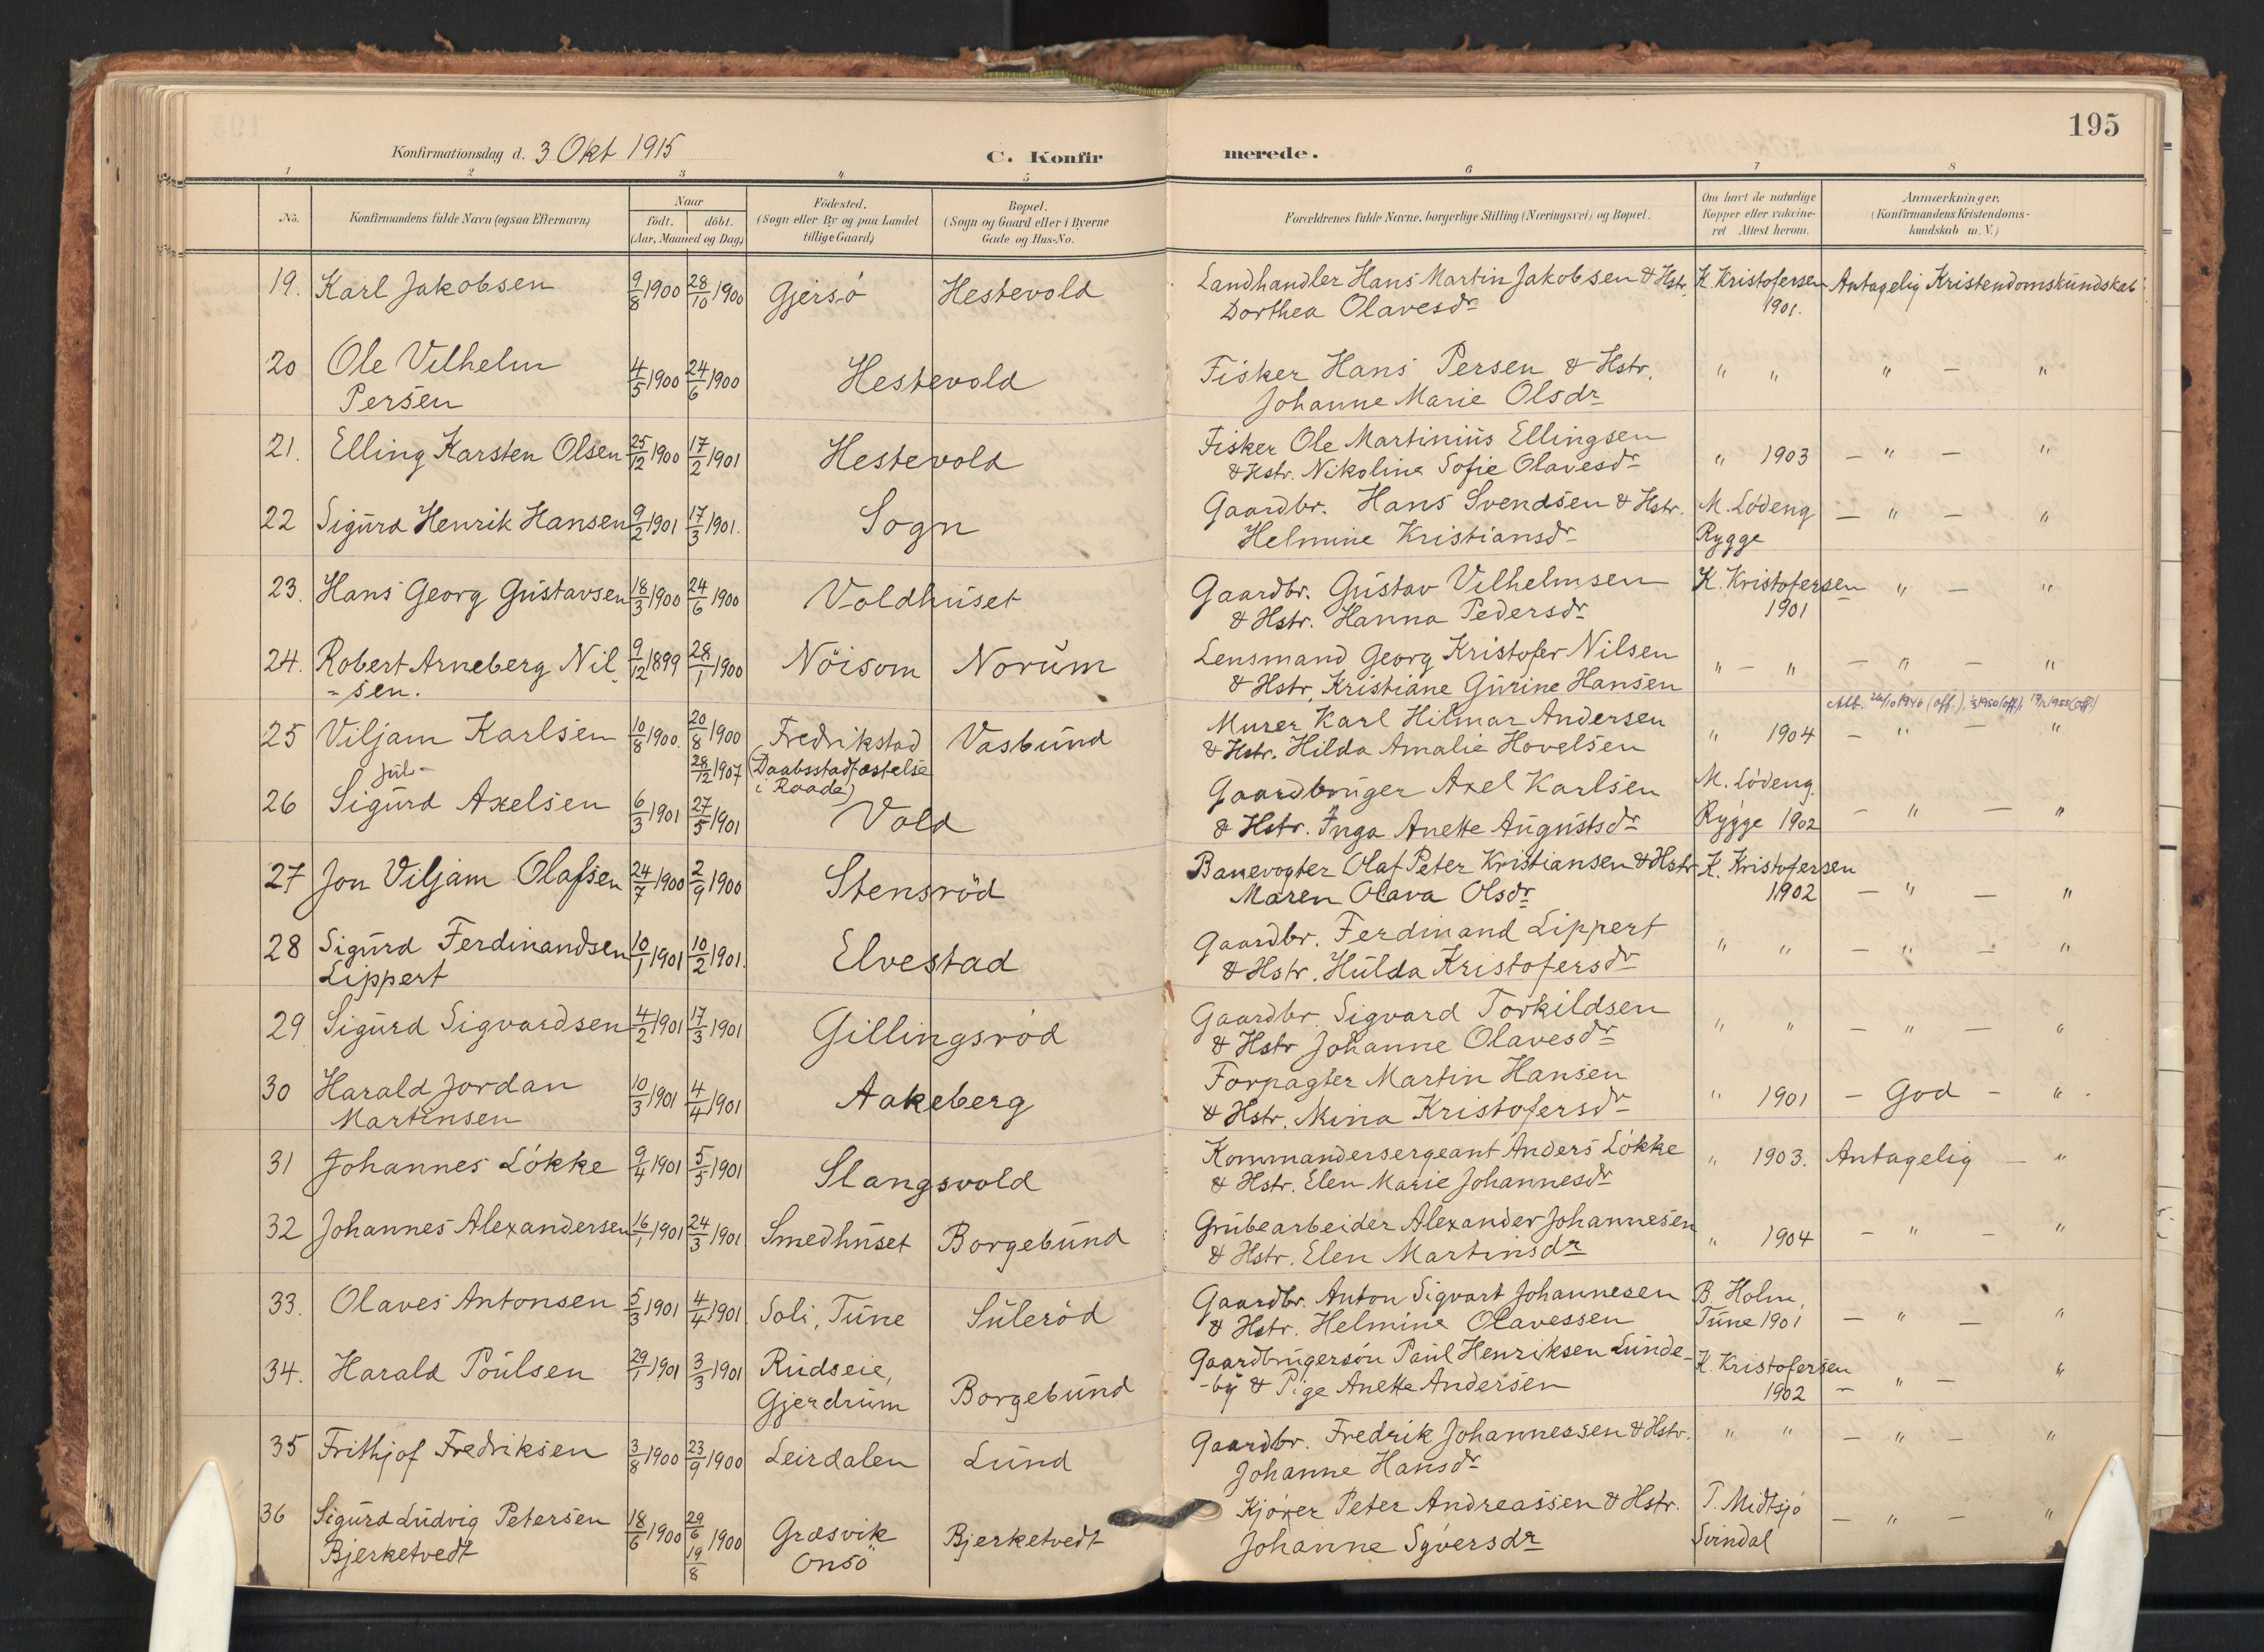 195
Konfirmationsdag d. 3 Okt 1915
C. Konfirmerede.
1 2 3 4 5 6 7 8
No. Konfirmandens fulde Navn (ogsaa Efternavn) Naar født. døbt. (Aar, Maaned og Dag) Fødested. (Sogn eller By og paa Landet tillige Gaard) Bopæl. (Sogn og Gaard eller i Byerne Gade og Hus-No. Forældrenes fulde Navne, borgerlige Stilling (Næringsvei) og Bopæl. Om havt de naturlige Kopper eller vakcineret Attest herom. Anmærkninger. (Konfirmandens Kristendomskundskab m. V.)
19. Karl Jakobsen 9/8 1900 28/10 1900 Gjersö Hestevold Landhandler Hans Martin Jakobsen & Hstr. K. Kristofersen Antagelig Kristendomskundskab
Dorthea Olavesdr 1901.
20 Ole Vilhelm 4/5 1900 24/6 1900 Hestevold Fisker Hans Persen & Hstr. " " " — "
Persen Johanne Marie Olsdr
21. Elling Karsten Olsen 25/12 1900 17/2 1901 Hestevold Fisker Ole Martinius Ellingsen " 1903 — " — "
& Hstr. Nikoline Sofie Olavesdr
22 Sigurd Henrik Hansen 9/2 1901 17/3 1901. Sogn Gaardbr. Hans Svendsen & Hstr. M. Lödeng — " — "
Helmine Kristiansdr Rygge
23. Hans Georg Gustavsen 18/3 1900 24/6 1900 Voldhuset Gaardbr. Gustav Vilhelmsen K. Kristofersen " — "
& Hstr. Hanna Pedersdr 1901
24. Robert Arneberg Nil- 9/12 1899 28/1 1900 Nöisom Norum Lensmand Georg Kristofer Nilsen " — " — " — "
-sen. & Hstr. Kristiane Gurine Hansen
Atb. 26/10 1946 (off.),
25 Viljam Karlsen 10/8 1900. 20/8 1900 Fredrikstad Vasbund Murer Karl Hilmar Andersen " 1904 — " — "
28/12 1907 (Daabsstadfæstelse i Raade) & Hstr. Hilda Amalie Hovelsen
Jul-
26 Sigurd Axelsen 6/3 1901 27/5 1901 Vold Gaardbruger Axel Karlsen M. Lödeng. — " — "
& Hstr. Inga Anette Augustsdr Rygge 1902
27 Jon Viljam Olafsen 24/7 1900 2/9 1900 Stensröd Banevogter Olaf Peter Kristiansen & Hstr K. Kristofersen
Maren Olava Olsdr 1902 — " — "
28 Sigurd Ferdinandsen 10/1 1901 10/2 1901. Elvestad Gaardbr. Ferdinand Lippert " " — " — "
Lippert & Hstr. Hulda Kristofersdr
29 Sigurd Sigvardsen 4/2 1901 17/3 1901 Gillingsröd Gaardbr. Sigvard Torkildsen " " — " — "
& Hstr Johanne Olavesdr
30 Harald Jordan 10/3 1901 4/4 1901 Aakeberg Forpagter Martin Hansen " 1901 — God — "
Martinsen & Hstr. Mina Kristofersdr
31 Johannes Lökke 9/4 1901 5/5 1901 Slangsvold Kommandersergeant Anders Lökke " 1903. Antagelig — "
& Hstr. Elen Marie Johannesdr
32 Johannes Alexandersen 16/1 1901 24/3 1901 Smedhuset Borgebund Grubearbeider Alexander Johannesen " 1904 — " — "
& Hstr. Elen Martinsdr
33. Olaves Antonsen 5/3 1901 4/4 1901. Soli, Tune Suleröd Gaardbr. Anton Sigvart Johannesen B. Holm,
& Hstr. Helmine Olavessen Tune 1901 — " — "
34. Harald Poulsen 29/1 1901 3/3 1901 Rudseie, Gjerdrum Borgebund Gaardbrugersön Paul Henriksen Lunde- K. Kristofersen
-by & Pige Anette Andersen 1902 — " — "
35 Frithjof Fredriksen 3/8 1900 23/9 1900 Leirdalen Lund Gaardbr. Fredrik Johannessen & Hstr. " " — " — "
Johanne Hansdr
36 Sigurd Ludvig Petersen 18/6 1900 29/6 19/8 1900 Græsvik Bjerketvedt Kjörer Peter Andreassen & Hstr. T. Midtsjö — " — "
Bjerketvedt Onsö Johanne Syversdr Svindal